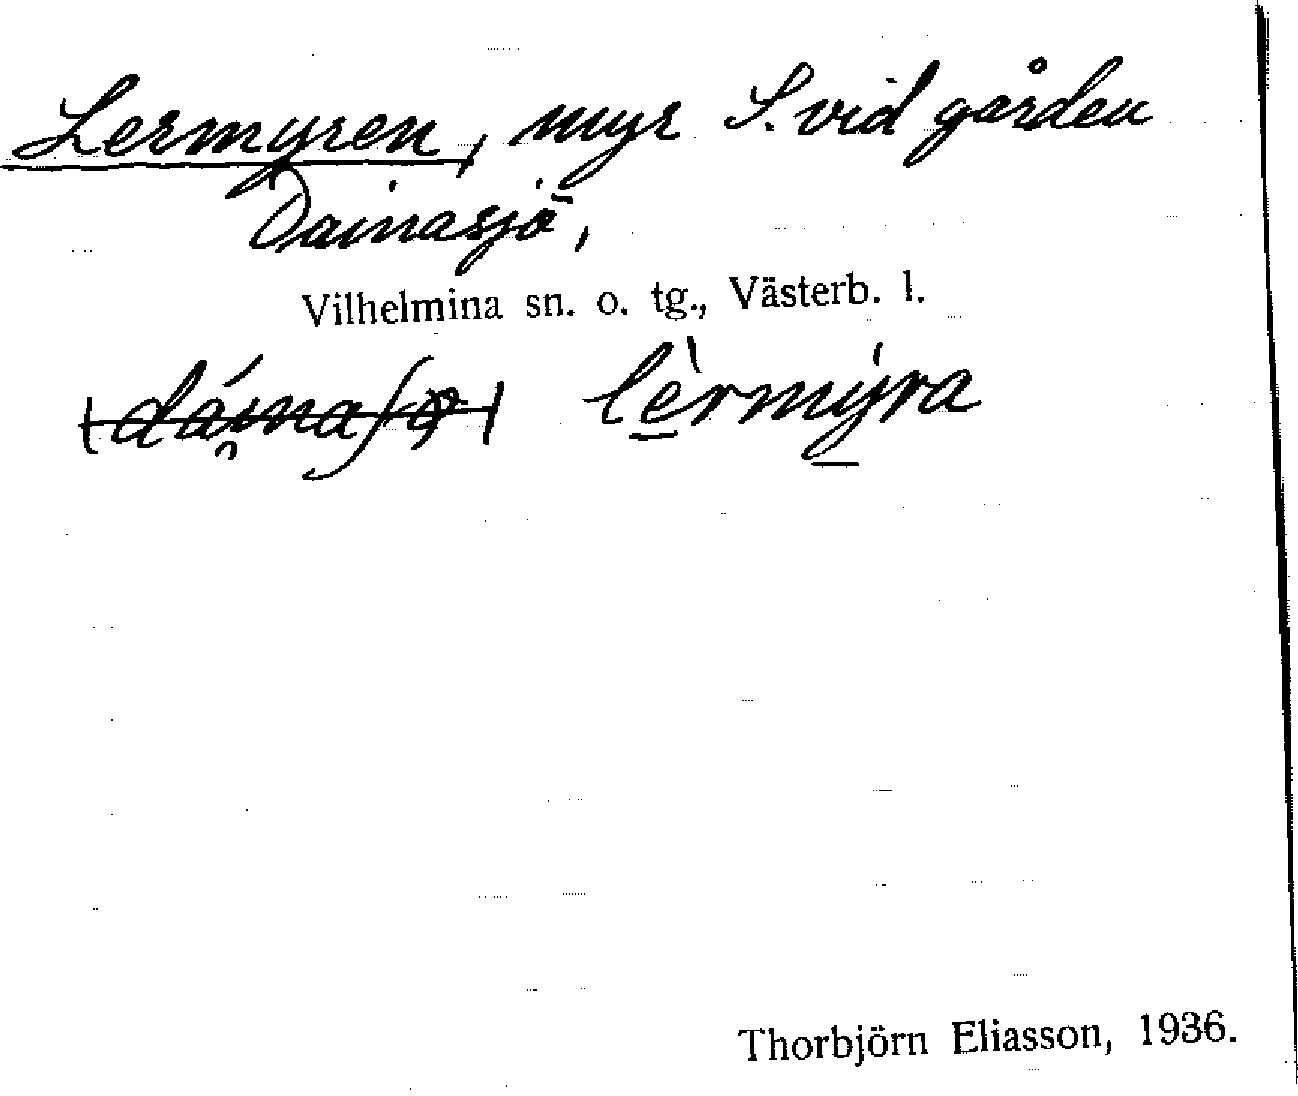 Lermyren, myr S. vid gården
Dainasjö,
Vilhelmina sn. o. tg., Västerb. l.
lèrmýra
Thorbjörn Eliasson, 1936.